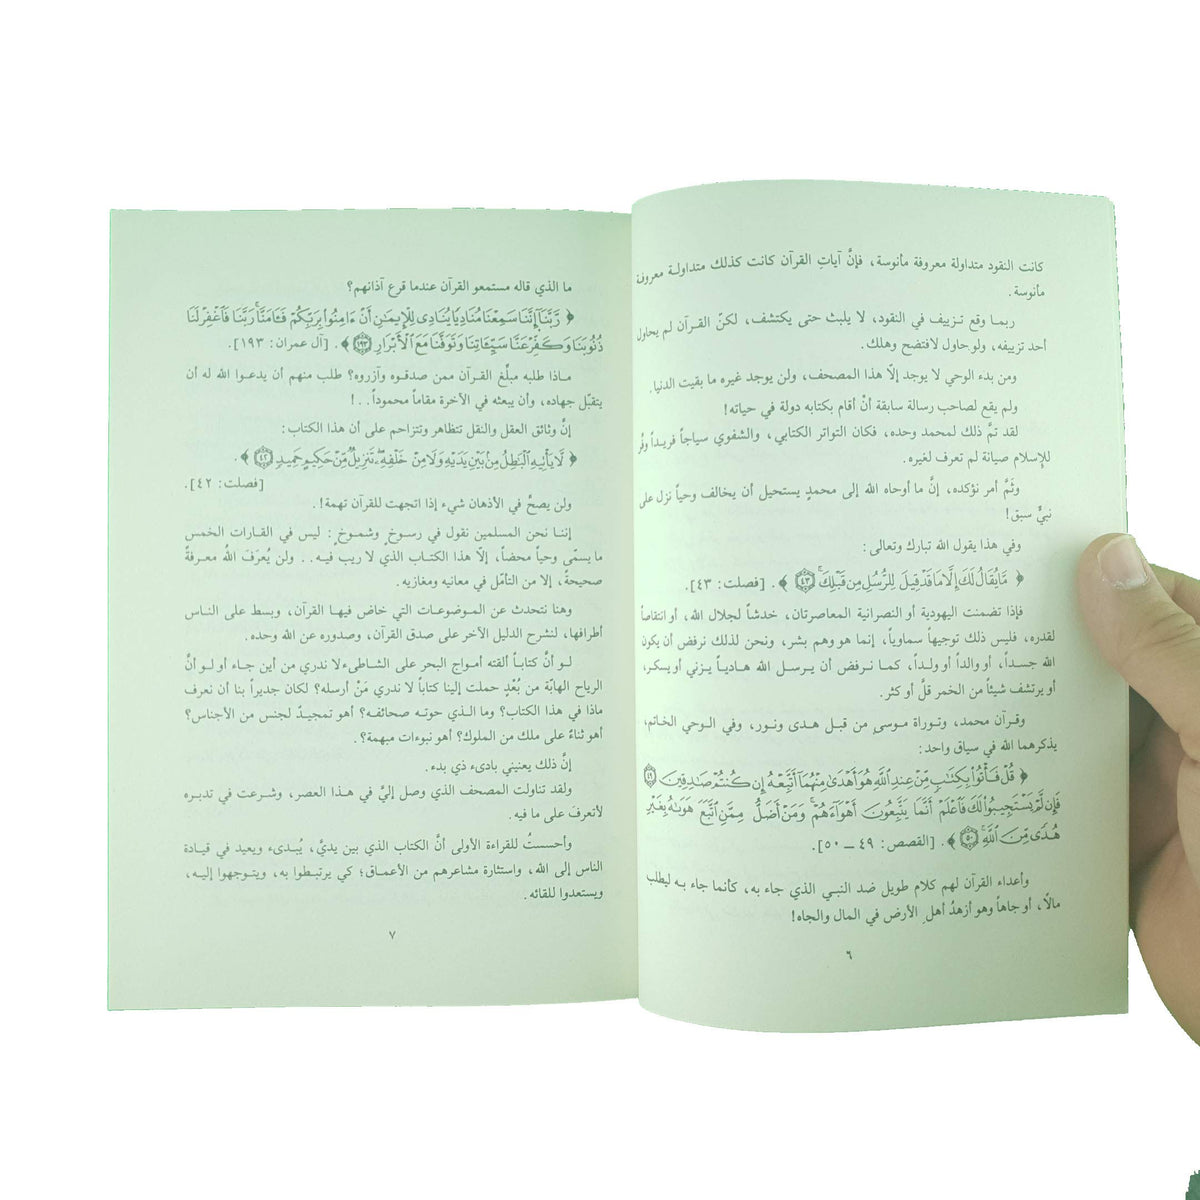 كانت النقود متداولة معروفة مأنوسة، فإنَّ آياتِ القرآن كانت كذلك متداولـة معروفة
مأنوسة.
ربمـا وقع تـزييف في النقود، لا يلبث حتى يكتشف، لكنّ القـرآن لم يحاول
أحد تزييفه، ولو حاول لافتضح وهلك.
ومن بدء الوحي لا يوجد إلَّا هذا المصحف، ولن يوجد غيره ما بقيت الدنيا.
ولم يقع لصاحب رسالة سابقة أنْ أقام بكتابه دولة في حياته!
لقد تمَّ ذلك لمحمد وحده، فكان التواتر الكتابي، والشفوي سياجاً فريـداً وفَّر
للإسلام صيانة لم تعرف لغيره.
وثَمَّ أمر نؤكده، إنَّ ما أوحاه الله إلى محمدٍ يستحيل أن يخالف وحياً نزل على
نبيٍّ سبق!
وفي هذا يقول الله تبارك وتعالى:
﴿ مَّا يُقَالُ لَكَ إِلَّا مَا قَدۡ قِيلَ لِلرُّسُلِ مِن قَبۡلِكَۚ ٤٣ ﴾. [فصلت: ٤٣].
فإذا تضمنت اليهودية أو النصرانية المعاصرتان، خدشـاً لجلال الله، أو انتقاصاً
لقدره، فليس ذلك توجيهاً سماوياً، إنما هو وهم بشر، ونحن لذلك نرفض أن يكون
الله جسـداً، أو والداً أو ولـداً، كمـا نـرفض أن يـرسـل الله هاديـاً يـزني أو يسكر،
أو يرتشف شيئاً من الخمر قلَّ أو كثر.
وقـرآن محمد، وتوراة موسـى من قبـل هدى ونـور، وفي الوحي الخاتم،
يذكرهما الله في سياق واحد:
﴿ قُلۡ فَأۡتُواْ بِكِتَٰبٖ مِّنۡ عِندِ ٱللَّهِ هُوَ أَهۡدَىٰ مِنۡهُمَآ أَتَّبِعۡهُ إِن كُنتُمۡ صَٰدِقِينَ ٤٩
فَإِن لَّمۡ يَسۡتَجِيبُواْ لَكَ فَٱعۡلَمۡ أَنَّمَا يَتَّبِعُونَ أَهۡوَآءَهُمۡۚ وَمَنۡ أَضَلُّ مِمَّنِ ٱتَّبَعَ هَوَىٰهُ بِغَيۡرِ
هُدٗى مِّنَ ٱللَّهِۚ ٥٠ ﴾. [القصص: ٤٩ ـ ٥٠].
وأعداء القرآن لهم كلام طويل ضد النبـي الذي جاء به، كأنما جاء بـه ليطلب
مالاً، أو جاهاً وهو أزهدُ أهلِ الأرض في المال والجاه!
٦
ما الذي قاله مستمعو القرآن عندما قرع آذانهم؟
﴿ رَّبَّنَآ إِنَّنَا سَمِعۡنَا مُنَادِيٗا يُنَادِي لِلۡإِيمَٰنِ أَنۡ ءَامِنُواْ بِرَبِّكُمۡ فَـَٔامَنَّاۚ رَبَّنَا فَٱغۡفِرۡ لَنَا
ذُنُوبَنَا وَكَفِّرۡ عَنَّا سَيِّـَٔاتِنَا وَتَوَفَّنَا مَعَ ٱلۡأَبۡرَارِ ١٩٣ ﴾. [آل عمران: ١٩٣].
مـاذا طلبه مبلِّغ القرآن ممن صدقـوه وآزروه؟ طلب منهم أن يدعـوا الله له أن
يتقبّل جهاده، وأن يبعثه في الآخرة مقاماً محموداً..!
إنَّ وثائق العقل والنقل تتظاهر وتتزاحم على أن هذا الكتاب:
﴿ لَّا يَأۡتِيهِ ٱلۡبَٰطِلُ مِنۢ بَيۡنِ يَدَيۡهِ وَلَا مِنۡ خَلۡفِهِۦۖ تَنزِيلٞ مِّنۡ حَكِيمٍ حَمِيدٖ ٤٢ ﴾.
[فصلت: ٤٢].
ولن يصحَّ في الأذهان شيء إذا اتجهت للقرآن تهمة!.
إننـا نحن المسلمين نقول في رسـوخٍ وشمـوخٍ: ليس في القـارات الخمس
ما يسمّى وحياً محضاً، إلّا هذا الكتاب الذي لا ريب فيـه.. ولن يُعرَفَ اللهُ معـرفةً
صحيحةً، إلا من التأمّل في معانيه ومغازيه.
وهنا نتحدث عن المـوضوعـات التي خاض فيهـا القرآن، وبسط على النـاس
أطرافها، لنشرح الدليل الآخر على صدق القرآن، وصدوره عن الله وحده.
لـو أنَّ كتابـاً ألقته أمـواج البحر على الشاطىء لا ندري من أين جاء أو لـو أنَّ
الرياح الهابّة من بُعْدٍ حملت إلينا كتاباً لا ندري مَنْ أرسله؟ لكان جديراً بنا أن نعرف
ماذا في هذا الكتاب؟ وما الـذي حوتـه صحائفـه؟ أهو تمجيـدٌ لجنس من الأجناس؟
أهو ثناءٌ على ملك من الملوك؟ أهو نبوءات مبهمة؟.
إنَّ ذلك يعنيني بادىء ذي بدء.
ولقد تناولت المصحف الذي وصل إليَّ في هـذا العصر، وشرعـت في تدبـره
لأتعرفَ على ما فيه.
وأحسستُ للقراءة الأولى أنَّ الكتاب الذي بين يديَّ، يُبـدىء ويعيد في قيـادة
الناس إلى الله، واستثارة مشاعرهم من الأعماق؛ كي يرتبطـوا به، ويتـوجهوا إليـه،
ويستعدوا للقائه.
٧